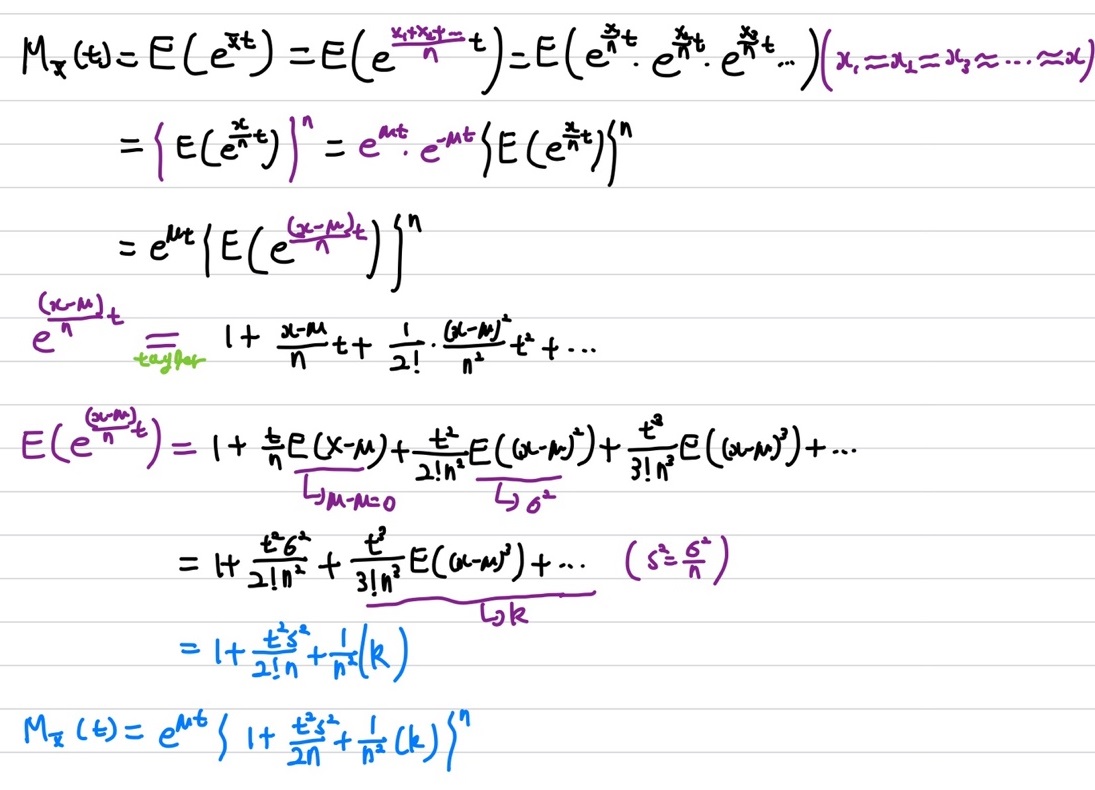 M_x̄(t) = E(e^{x̄t}) = E(e^{\frac{x₁+x₂+…}{n}t}) = E(e^{\frac{x₁}{n}t} · e^{\frac{x₂}{n}t} · e^{\frac{x₃}{n}t} …) (x₁≈x₂≈x₃≈…≈x)
= {E(e^{\frac{x}{n}t})}ⁿ = e^{μt} · e^{-μt} {E(e^{\frac{x}{n}t})}ⁿ
= e^{μt} {E(e^{\frac{(x-μ)}{n}t})}ⁿ
e^{\frac{(x-μ)}{n}t} = 1 + \frac{x-μ}{n}t + \frac{1}{2!} · \frac{(x-μ)²}{n²}t² + …
taylor
E(e^{\frac{(x-μ)}{n}t}) = 1 + \frac{t}{n}E(x-μ) + \frac{t²}{2!n²}E((x-μ)²) + \frac{t³}{3!n³}E((x-μ)³) + …
↳μ-μ=0 ↳σ²
= 1 + \frac{t²σ²}{2!n²} + \frac{t³}{3!n³}E((x-μ)³) + … (s²=\frac{σ²}{n})
↳k
= 1 + \frac{t²s²}{2!n} + \frac{1}{n²}(k)
M_x̄(t) = e^{μt} {1 + \frac{t²s²}{2n} + \frac{1}{n²}(k)}ⁿ